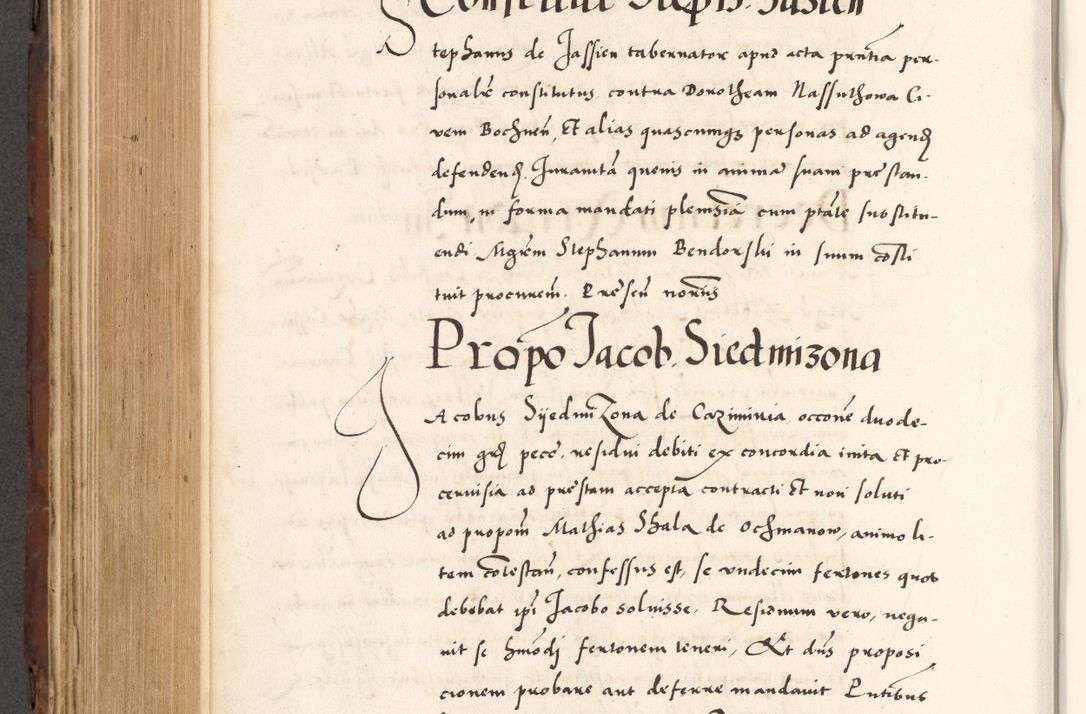 Steph. Jasien
Stephanus de Jassien tabernator apud acta pntia per-
sonalr constitutus, contra Dorotheam Nassuthowa Ci-
vem Bochnen, Et alias quascumqz personas ad agend
defendend, Juramta quevis in anima suam prestan-
dum, in forma mandati plenssia cum ptate substitu-
endi Mgrem Stephanum Bendorski in suum costi
tuit procurem. Presen
Propo Jacob. Siedmizona
JAcobus Sijedmizona de Cazimiria, occone duode-
cim grs pece, residui debiti ex concordia inita Et pro
cervisia ad prestam accepta contracti Et non soluti
ad propom Mathias Skala de Ochmanow, animo li-
tem cotestan, confessus est, se undecim fertones quos
debebat ipi Jacobo solvisse, Residuum vero, nega-
vit se hmodi fertonem teneri, Et dns proposi
cionem probare aut deferre mandavit Pntibus